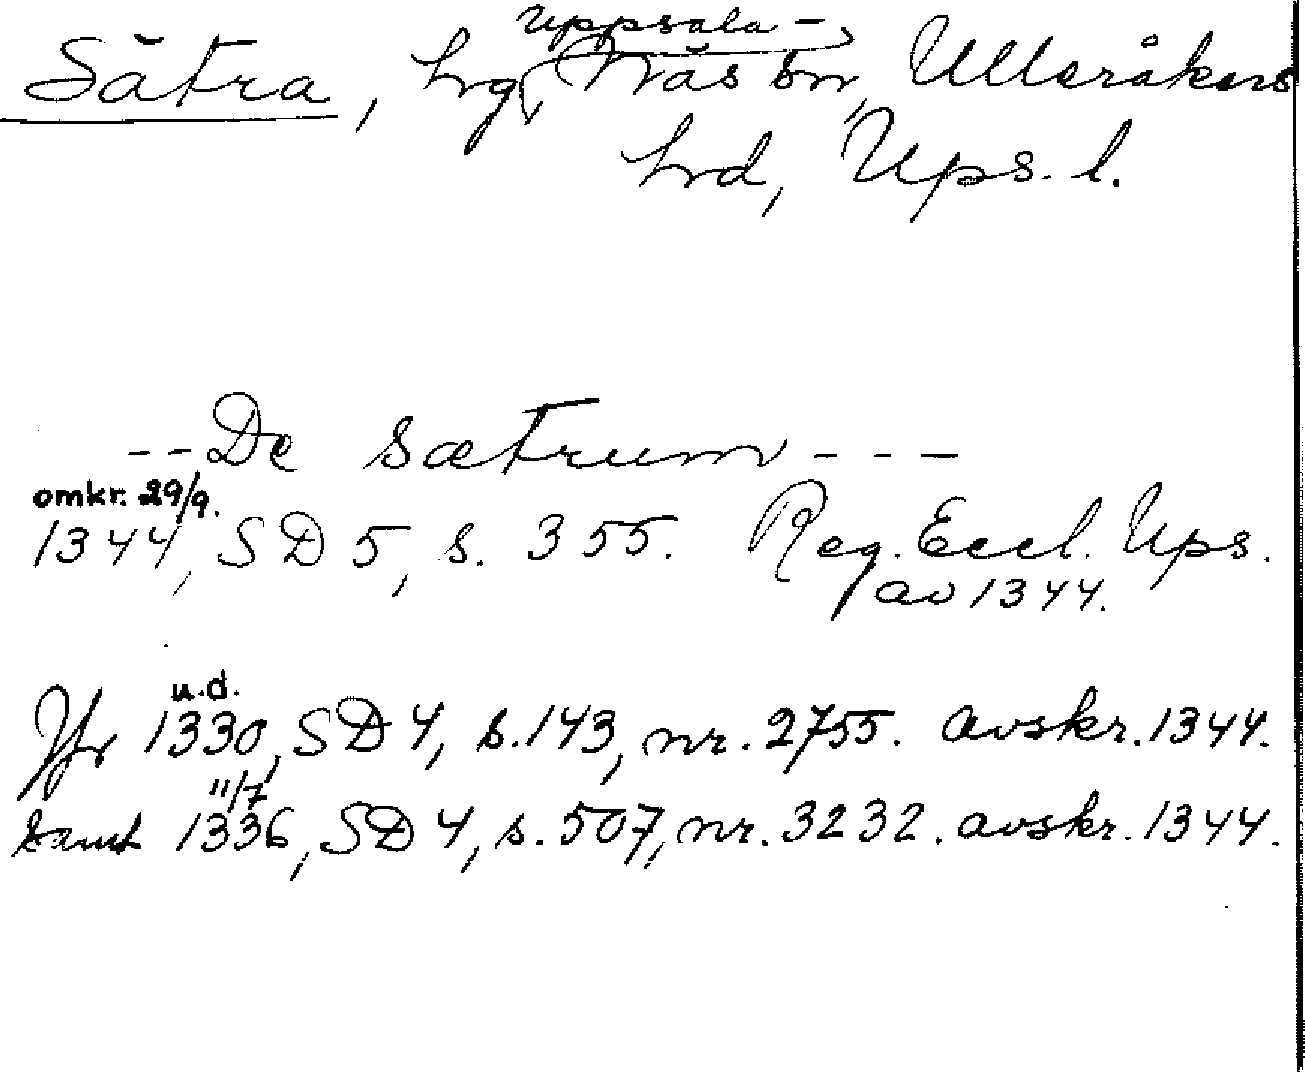 Sätra, hg, Uppsala-Näs sn, Ulleråkers
hrd, Ups. l.
-- De sætrum ---
omkr. 29/9.
1344, SD 5, s. 355. Reg. Eccl. Ups.
av 1344.
u.d.
Jfr 1330, SD 4, s. 143, nr. 2755. avskr. 1344.
11/7
samt 1336, SD 4, s. 507, nr. 3232. avskr. 1344.